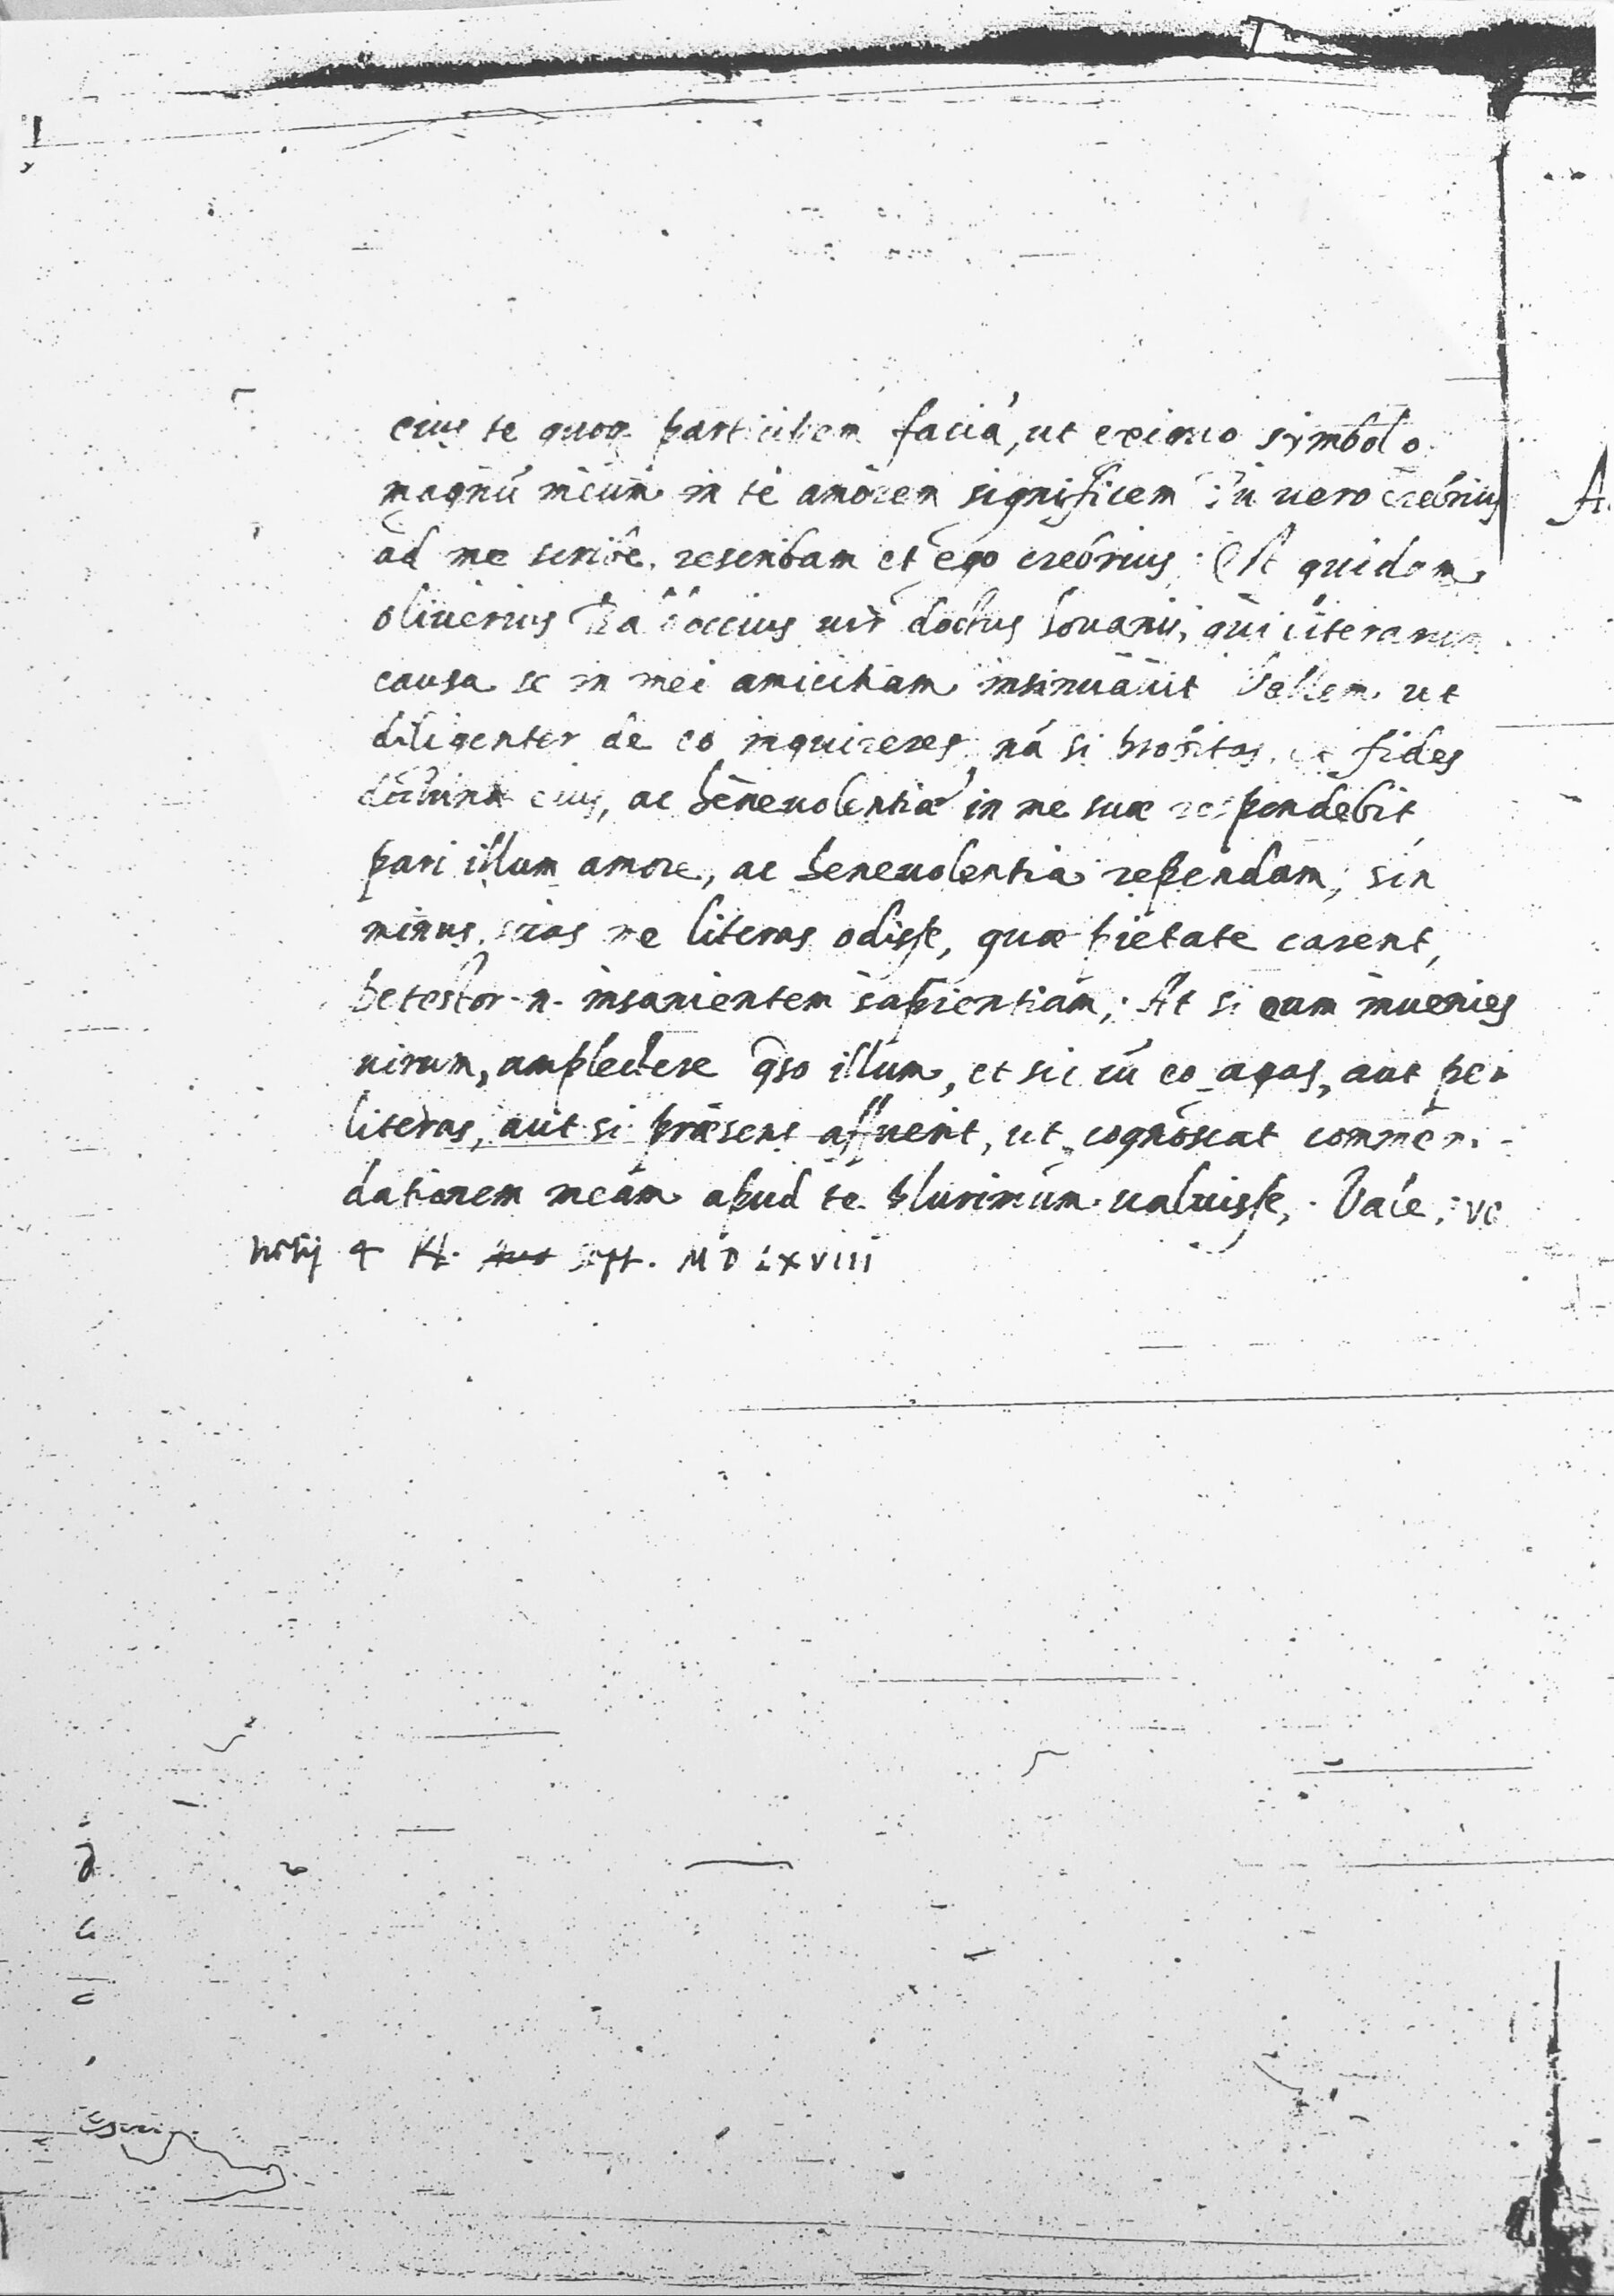 eius te quoq participem faciã, ut eximio symbolo
magnũ meum in te amorem significem Tu vero crebrius
ad me scribe. rescribam et ego crebrius: Est quidam
oliverius vir doctus lovanij, qui literarum
causa se in mei amicitiam insinuavit Vellem ut
diligenter de eo inquireres, nã si probitas, et fides
doctrinæ eius, ac benevolentiæ in me suæ respondebit
pari illum amore, ac benevolentia rependam; sin
minus, scias me literas odisse, quæ pietate carent,
Detestor .n. insanientem sapientiam; At si eum invenies
virum, amplectere qso illum, et sic cũ eo agas, aut per
literas, aut si præsens affuerit, ut cognoscat commen-
dationem meam apud te plurimum valuisse. Vale; ve
netij 4 Kl. sept. MDLXVIII